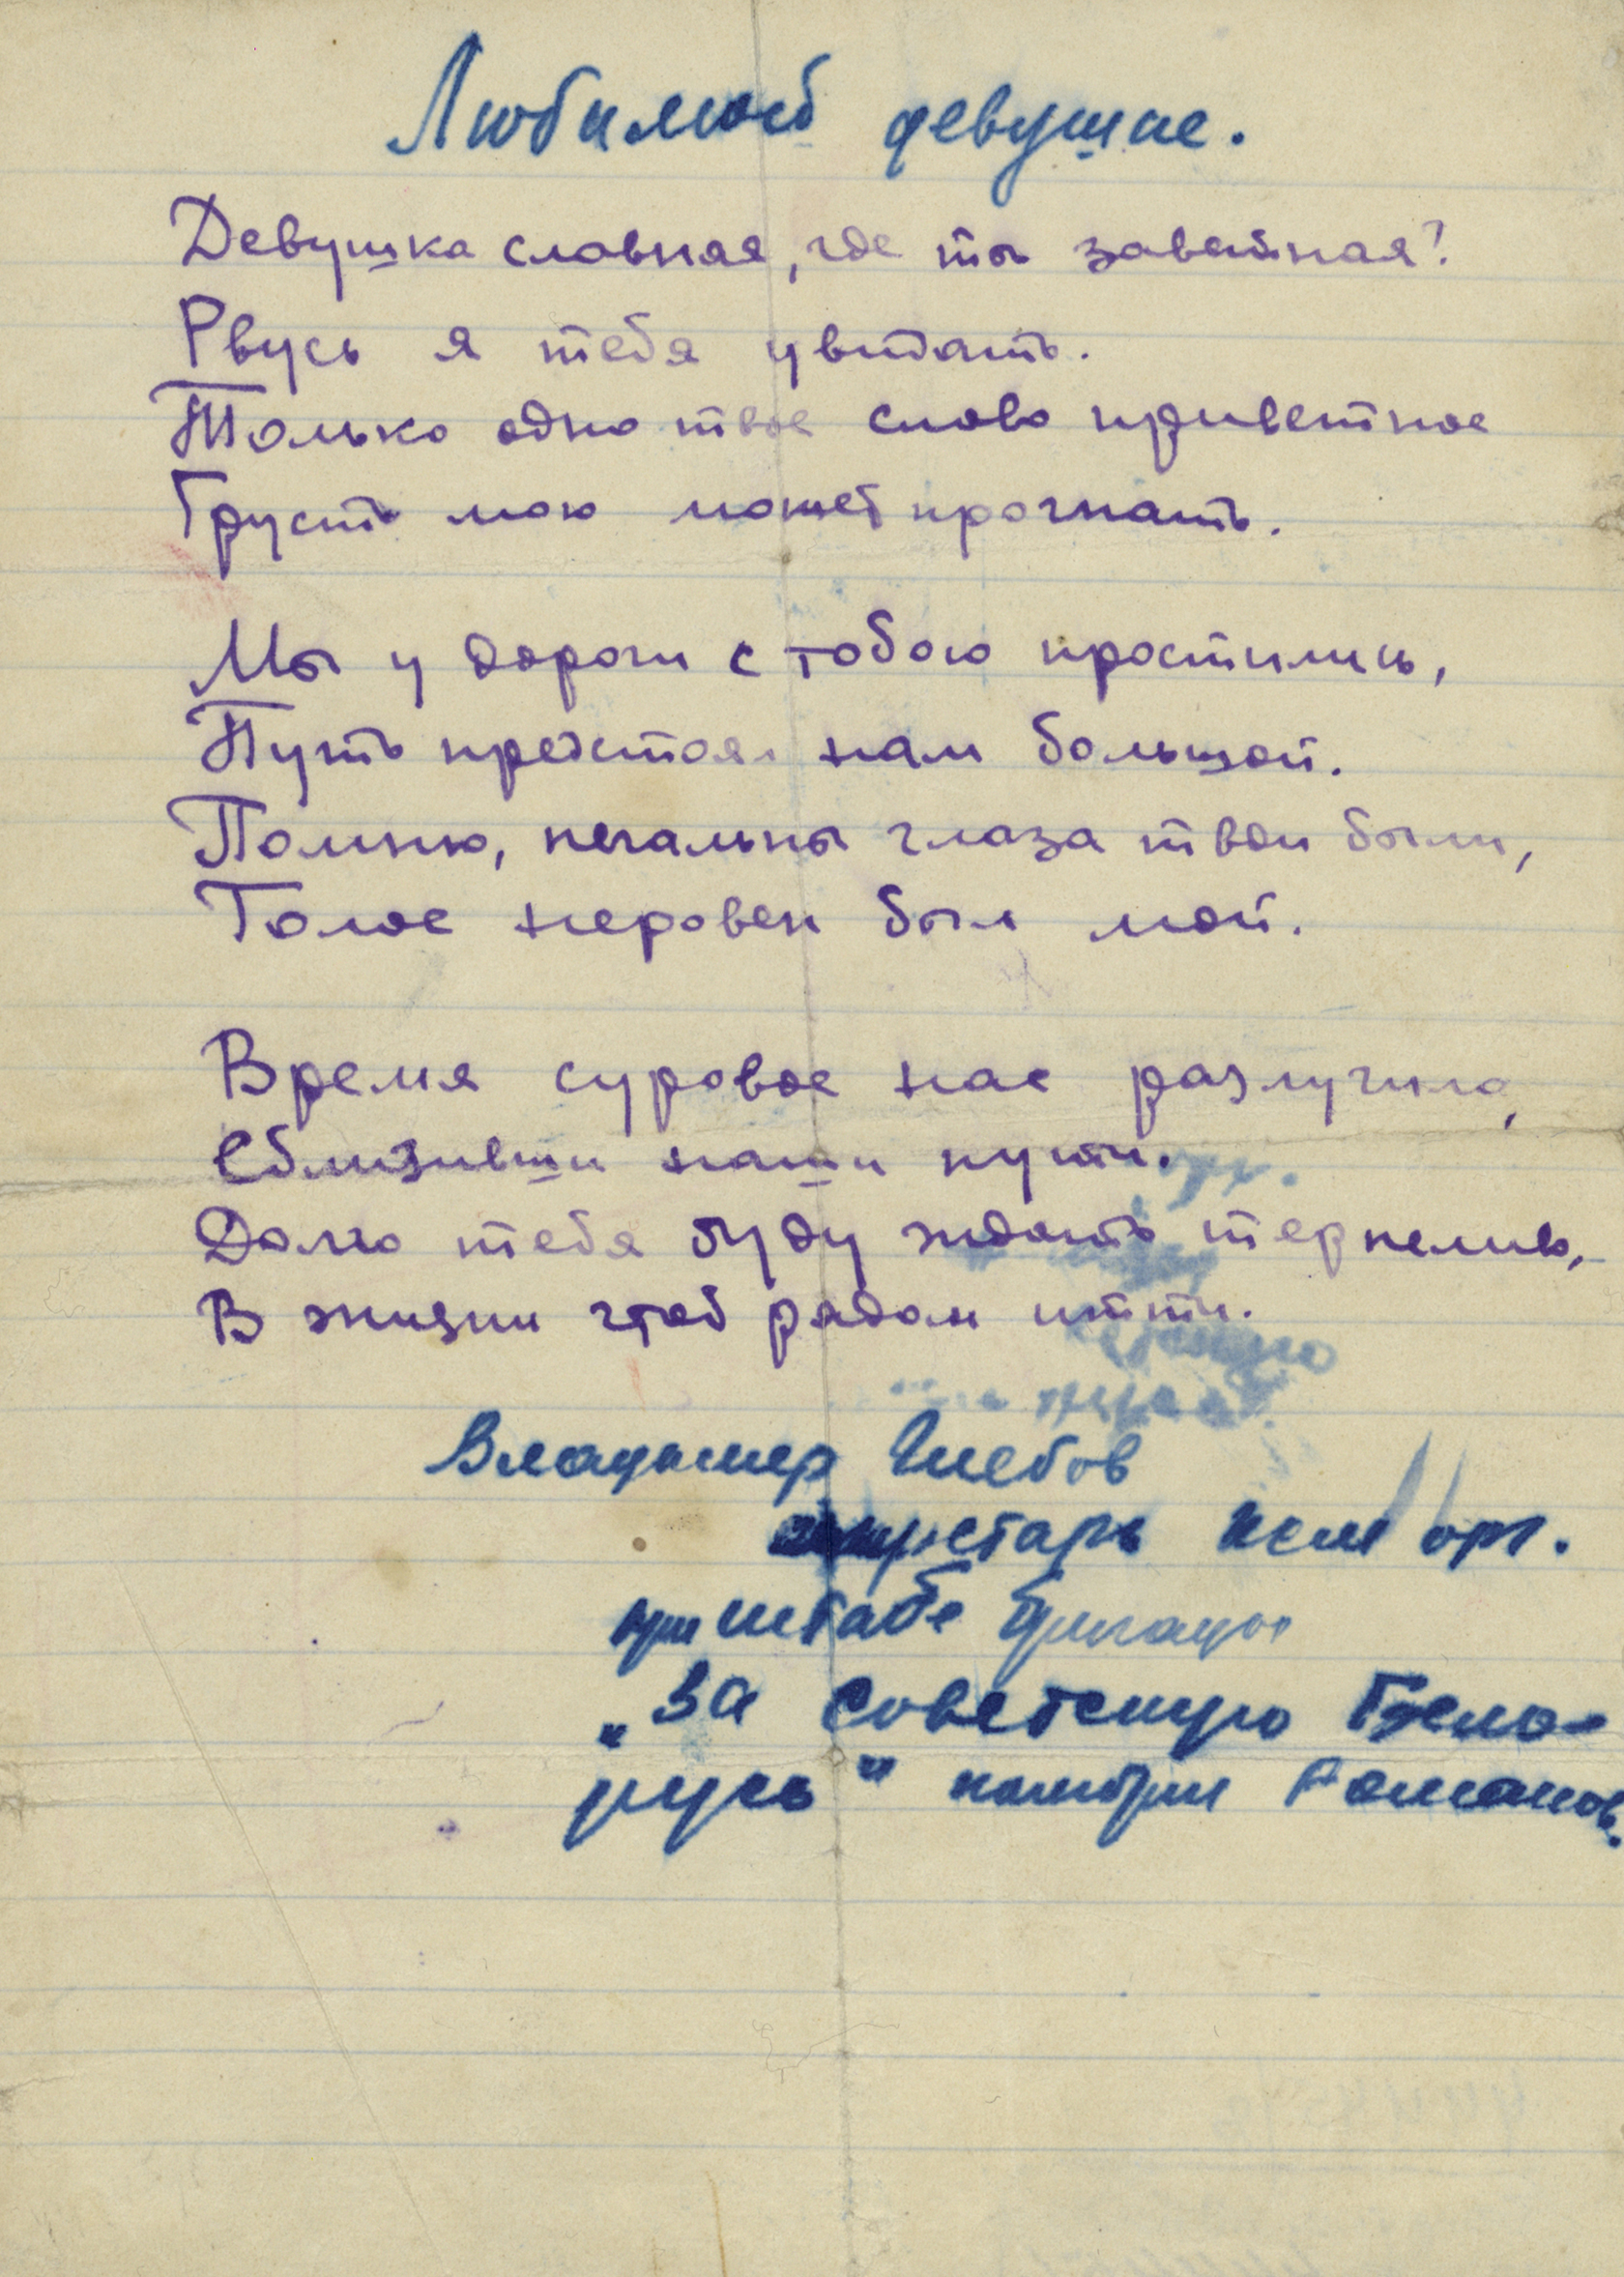 Любимой девушке.
Девушка славная, где ты заветная?
Рвусь я тебя увидать.
Только одно твое слово приветное
Грусть мою может прогнать.
Мы у дороги с тобою простились,
Путь предстоял нам большой.
Помню, печальны глаза твои были,
Голос неровен был мой.
Время суровое нас разлучило,
Сблизивши наши пути.
Долго тебя буду ждать терпеливо,
В жизни чтоб рядом итти.
Владимир Глебов
секретарь ксм орг.
при штабе бригады
"За Советскую Бело-
русь" комбриг Романов.